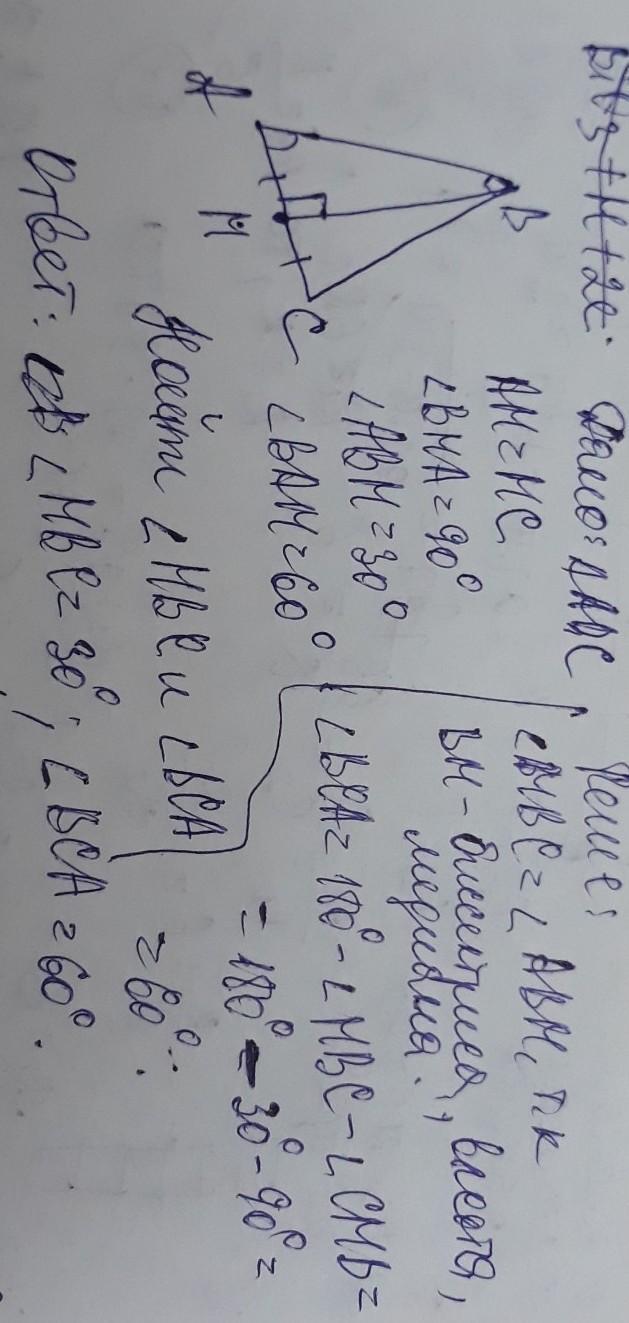 Дано: ΔABC
AM=MC
∠BMA=90°
∠ABM=30°
∠BAM=60°
Найти ∠MBC и ∠BCA
B
A
M
C
Реш е:
∠MBC=∠ABM, т.к
BM - биссектриса, высота,
медиана.
∠BCA=180°-∠MBC-∠CMB=
=180°-30°-90°=
=60°.
Ответ: ∠MBC=30°; ∠BCA=60°.